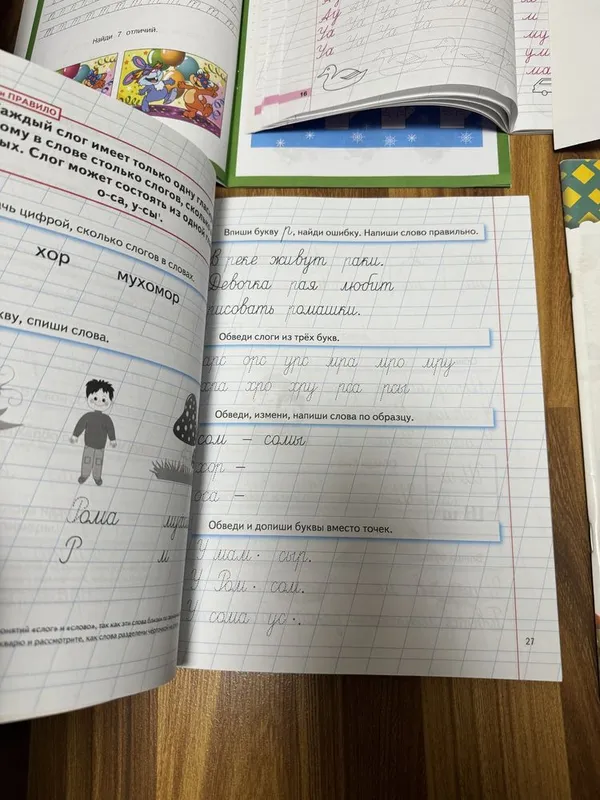 Найди 7 отличий.
Ау
Уа
Уа
16
м
му
ум
ма
ПРАВИЛО
каждый слог имеет только одну
в слове столько слогов,
Слог может состоять из одной
о-са, у-сы'.
цифрой, сколько слогов в словах.
хор мухомор
спиши слова.
Рома
Р м
«слог» и «слово», так как эти слова
и рассмотрите, как слова разделены
Впиши букву р, найди ошибку. Напиши слово правильно.
В реке живут раки.
Девочка рая любит
рисовать ромашки.
Обведи слоги из трёх букв.
арс орс урс мра мро мру
хра хро хру рса рсы
Обведи, измени, напиши слова по образцу.
сом – сомы
хор –
оса –
Обведи и допиши буквы вместо точек.
У мам· сыр.
У Ром· сом.
У сома ус·.
27